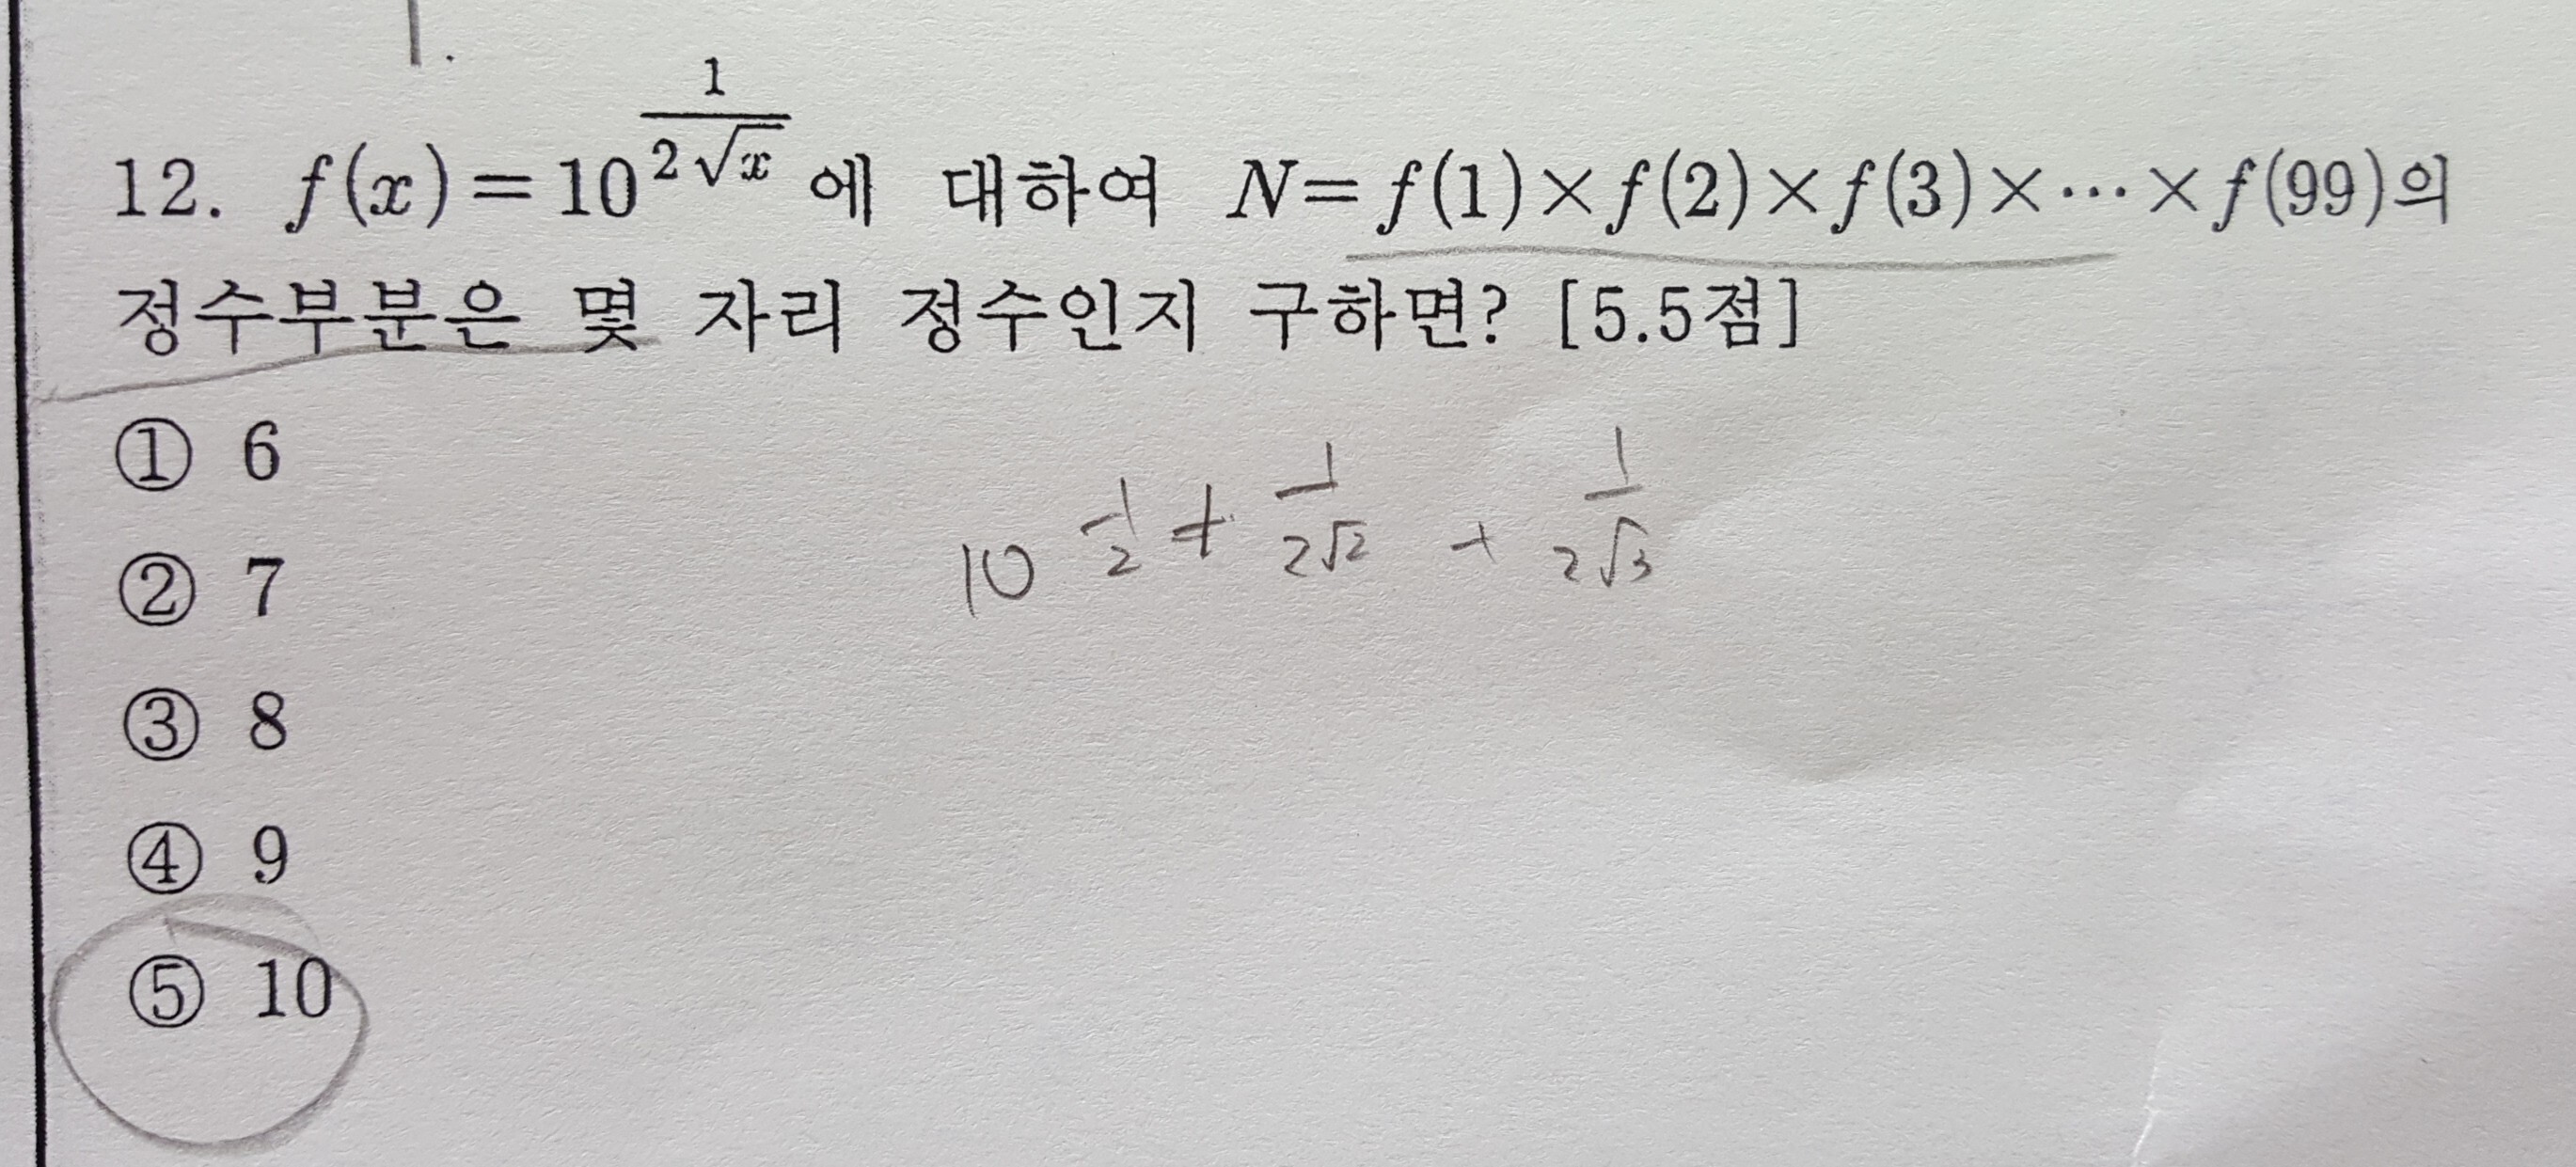 12. f(x)=10^{\frac{1}{2\sqrt{x}}}에 대하여 N=f(1)×f(2)×f(3)×⋯×f(99)의
정수부분은 몇 자리 정수인지 구하면? [5.5점]
① 6
10^{\frac{1}{2}+\frac{1}{2\sqrt{2}}+\frac{1}{2\sqrt{3}}}
② 7
③ 8
④ 9
⑤ 10